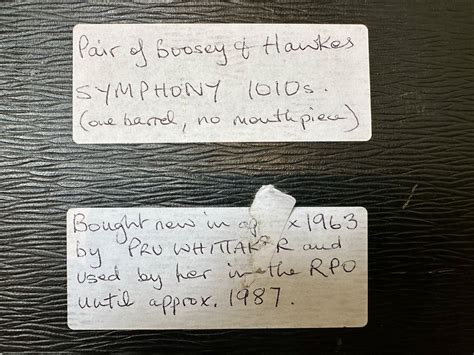 Pair of Boosey & Hawkes
SYMPHONY 1010s.
(one barrel, no mouthpiece)
Bought new in ap x 1963
by PRU WHITTAK R and
used by her in the RPO
until approx. 1987.